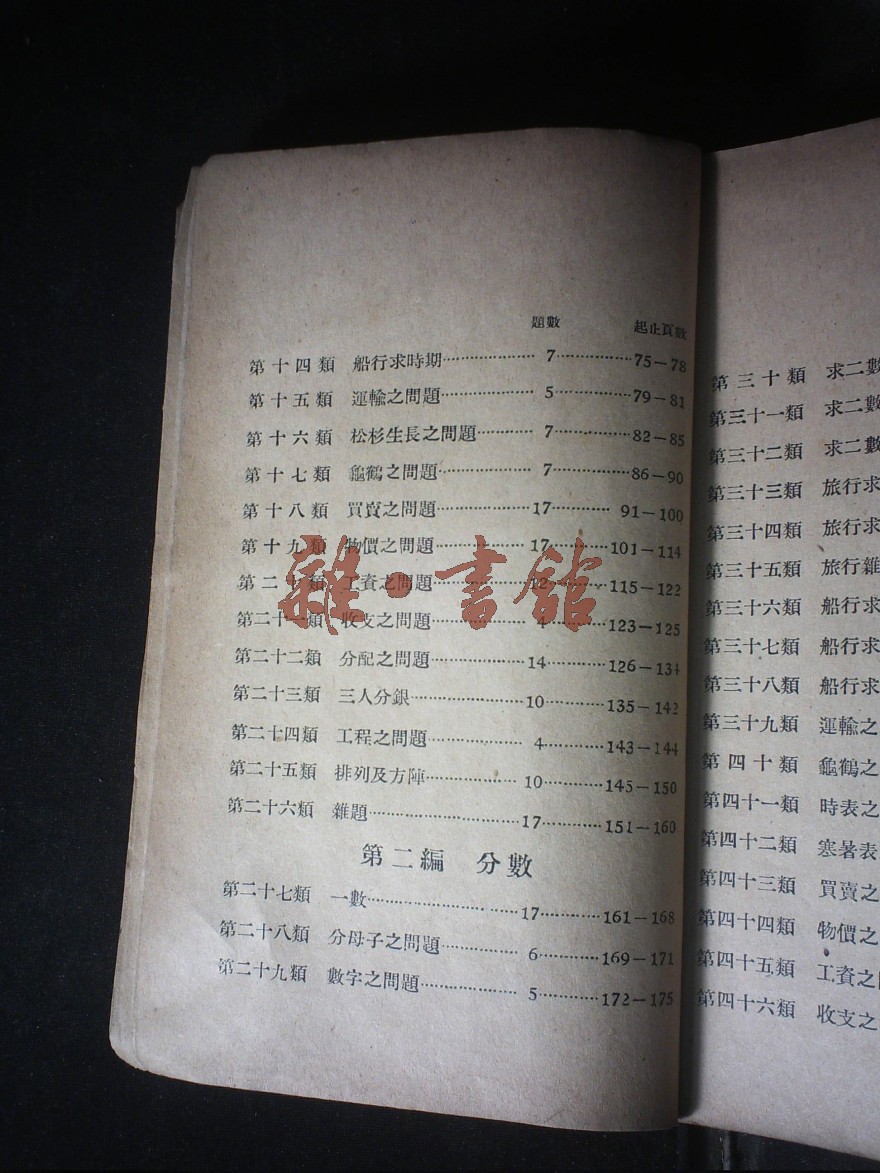 題數 起止頁數
第十四類 船行求時期……………7……………75—78
第十五類 運輸之問題……………5……………79—81
第十六類 松杉生長之問題…………7……………82—85
第十七類 龜鶴之問題……………7……………86—90
第十八類 買賣之問題……………17…………91—100
第十九類 物價之問題……………17…………101—114
第二十類 工資之問題……………12…………115—122
第二十一類 收支之問題……………4…………123—125
第二十二類 分配之問題……………14…………126—134
第二十三類 三人分銀……………10…………135—142
第二十四類 工程之問題……………4…………143—144
第二十五類 排列及方陣……………10…………145—150
第二十六類 雜題……………………17…………151—160
第二編 分數
第二十七類 一數……………………17…………161—168
第二十八類 分母子之問題…………6…………169—171
第二十九類 數字之問題……………5…………172—175
雜·書館
第三十類 求二數
第三十一類 求二數
第三十二類 求二數
第三十三類 旅行求
第三十四類 旅行求
第三十五類 旅行雜
第三十六類 船行求
第三十七類 船行求
第三十八類 船行求
第三十九類 運輸之
第四十類 龜鶴之
第四十一類 時表之
第四十二類 寒暑表
第四十三類 買賣之
第四十四類 物價之
第四十五類 工資之
第四十六類 收支之